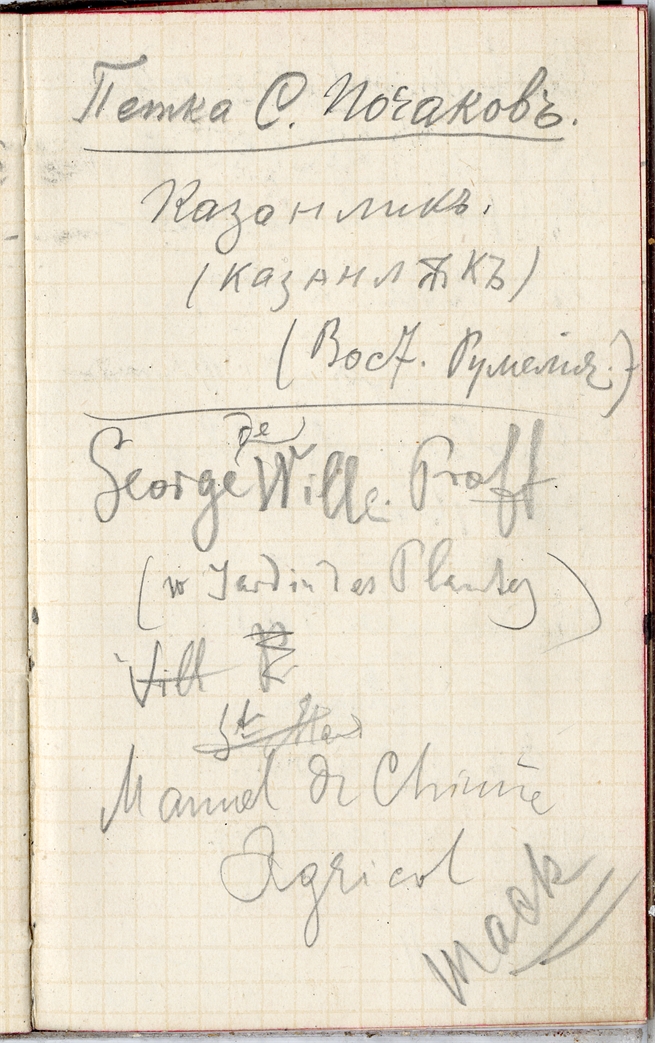 Петка С. Почаковъ.
Казанликъ.
(Казанлѫкъ)
(Вост. Румелия.)
De
George Wille. Proff
(w Jardin des Plantes)
Vill
St
Manuel de Chimie
Agricol
Mack